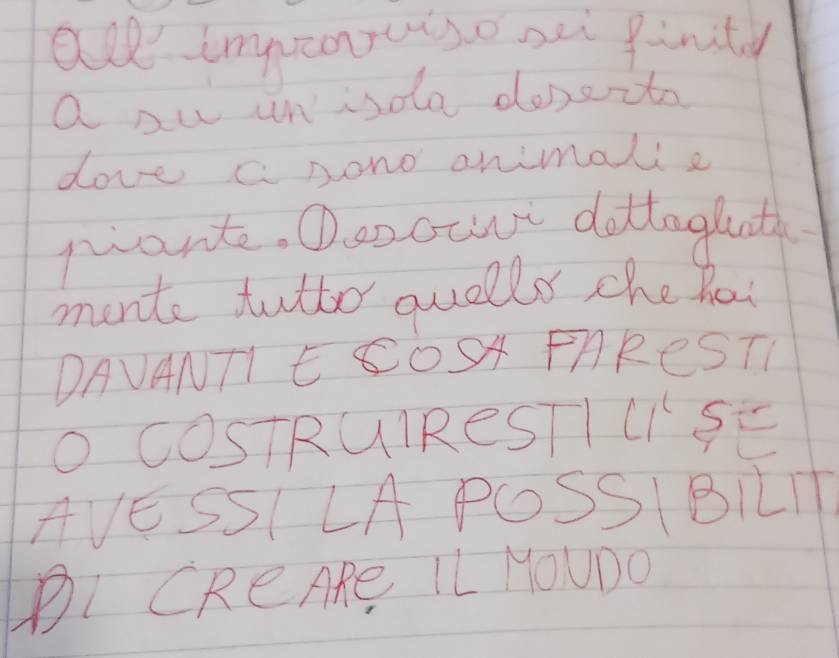 All' improvviso sei finito
a su un' isola deserta
dove ci sono animali e
piante. Descrivi dettagliata-
mente tutto quello che hai
DAVANTI E COSA FARESTI
O COSTRUIRESTI LI' SE
AVESSI LA POSSIBILIT
DI CREARE IL MONDO